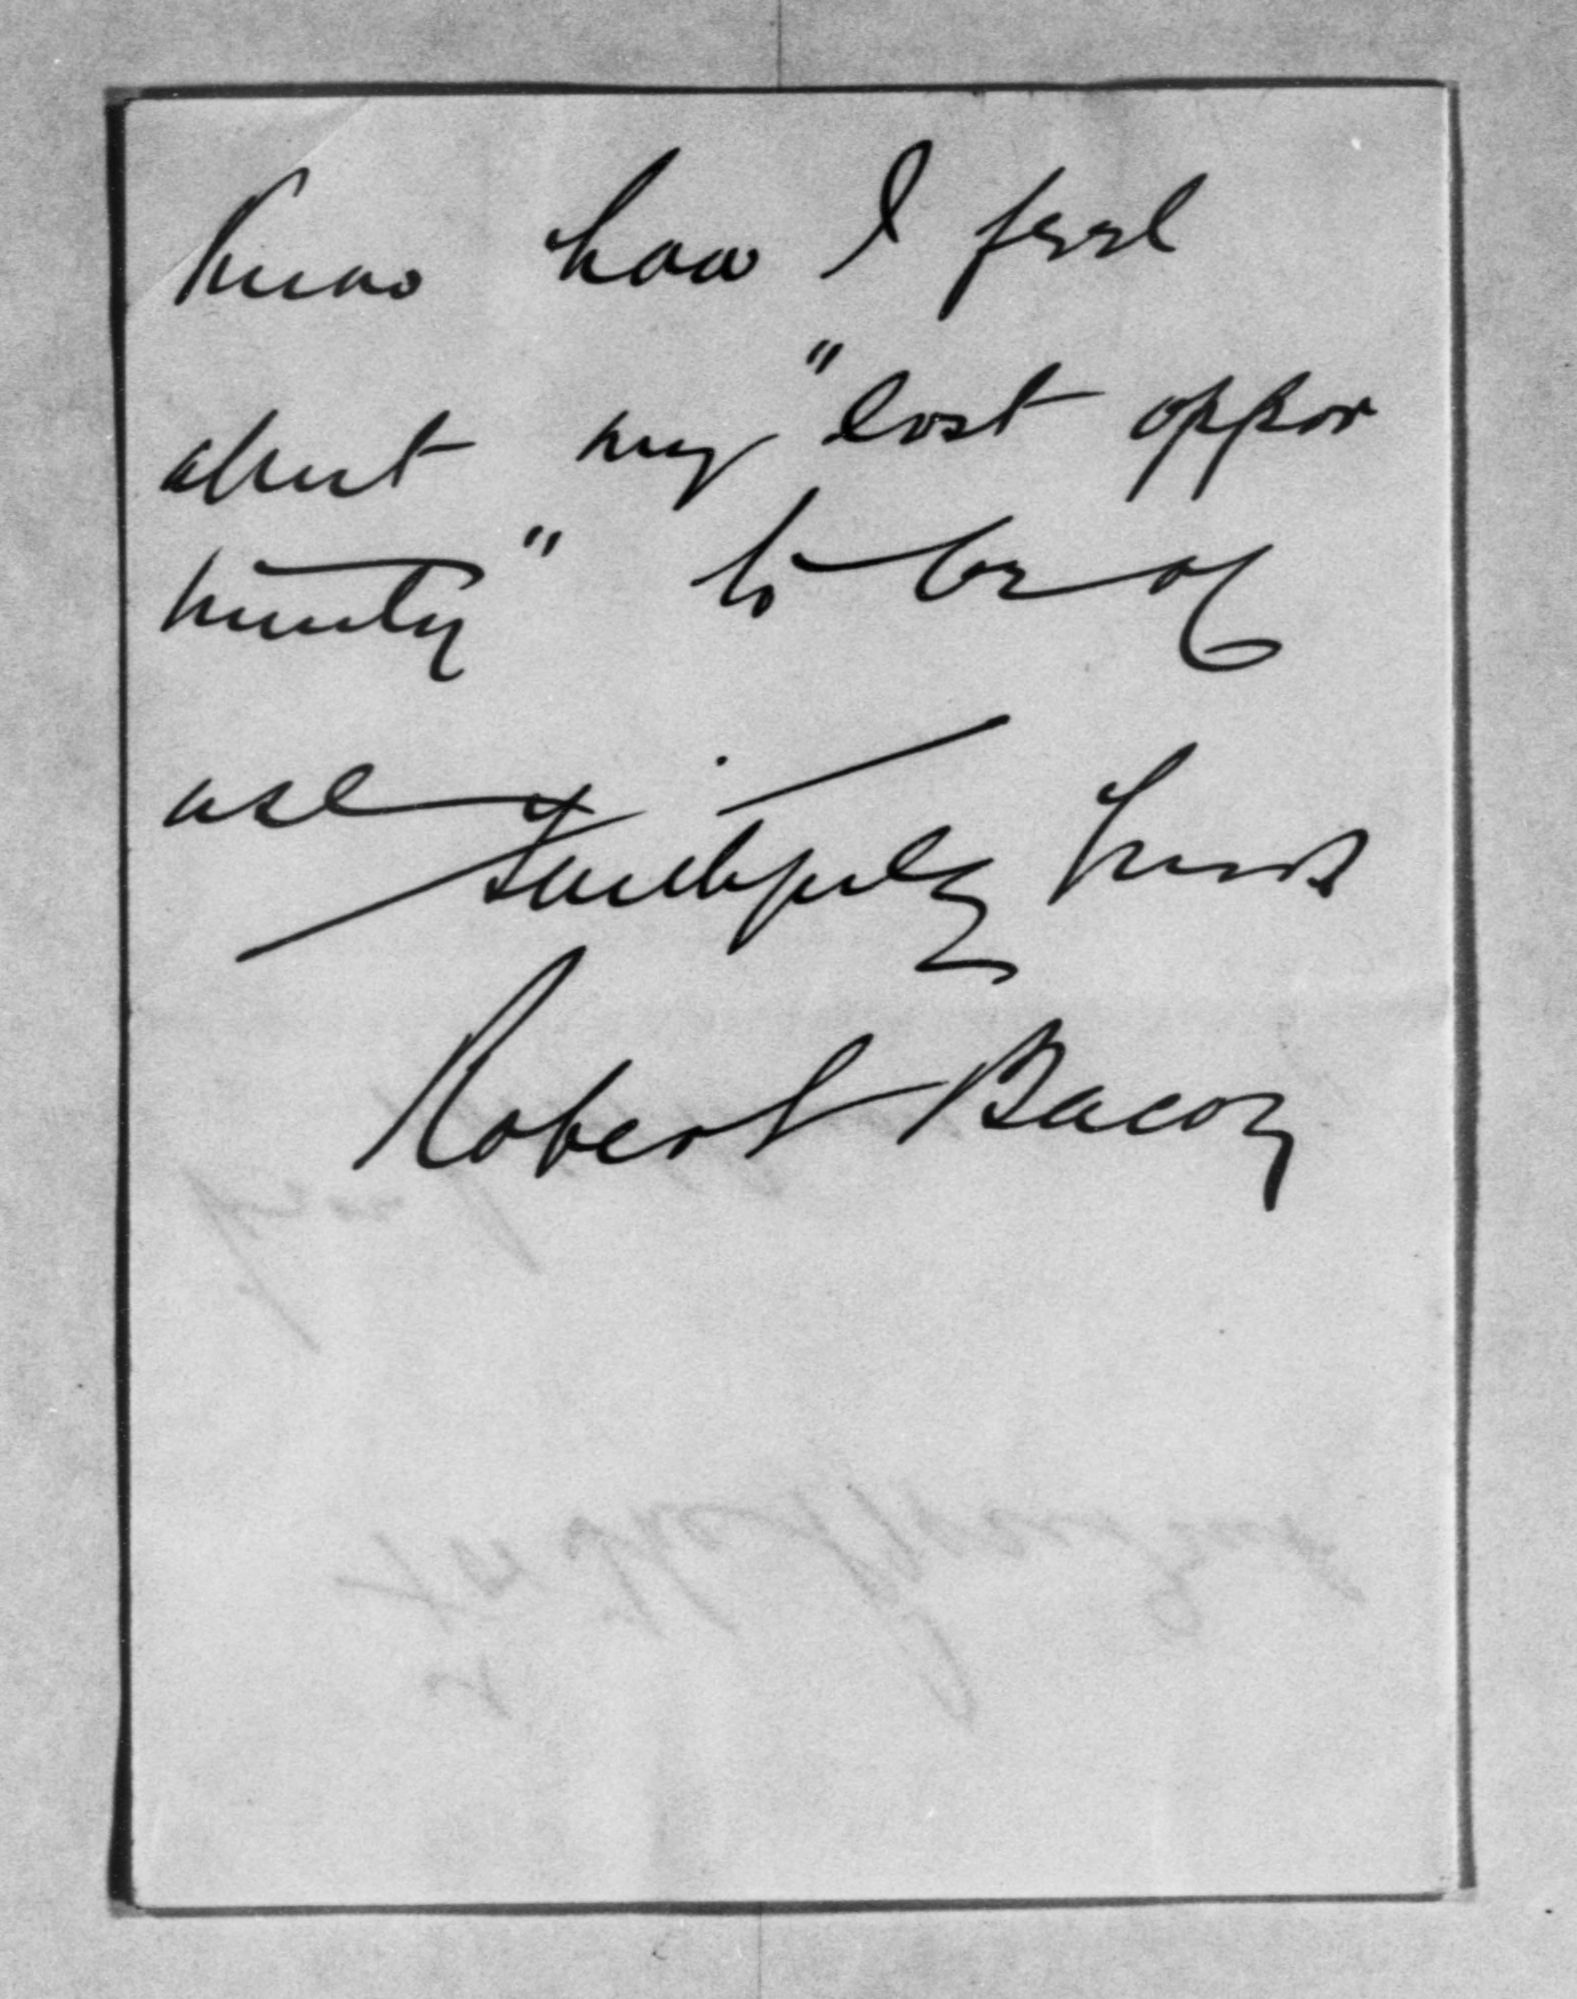 know how I feel
about my "lost oppor
tunity" to be of
use.
Faithfully Yours
Robert Bacon